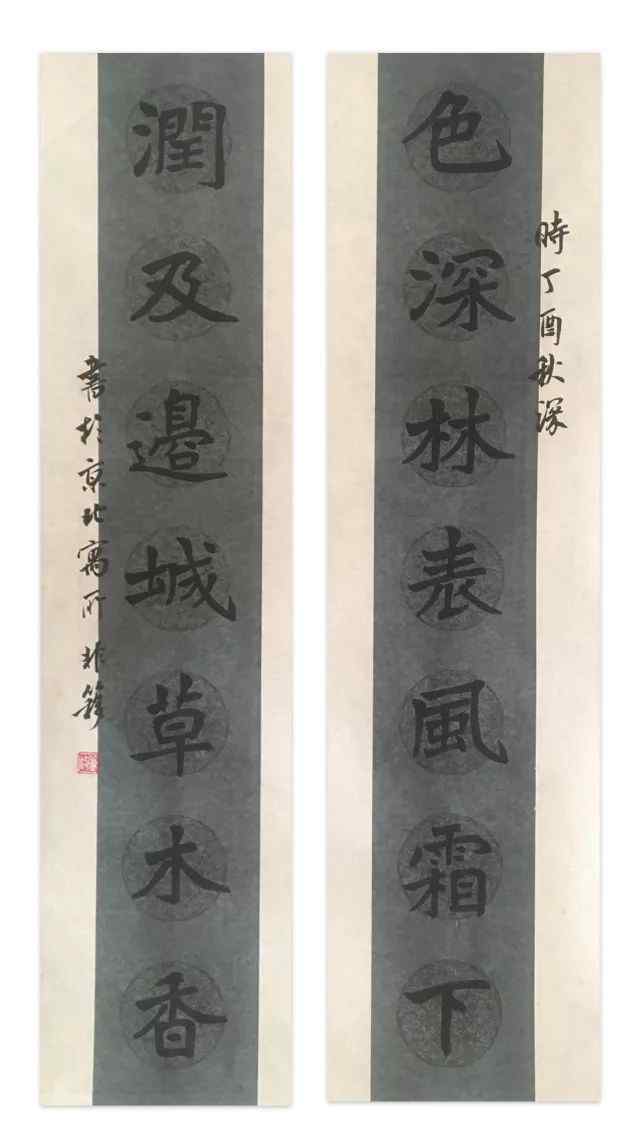 色深林表風霜下
時丁酉秋深
潤及邊城草木香
書於京北寓所